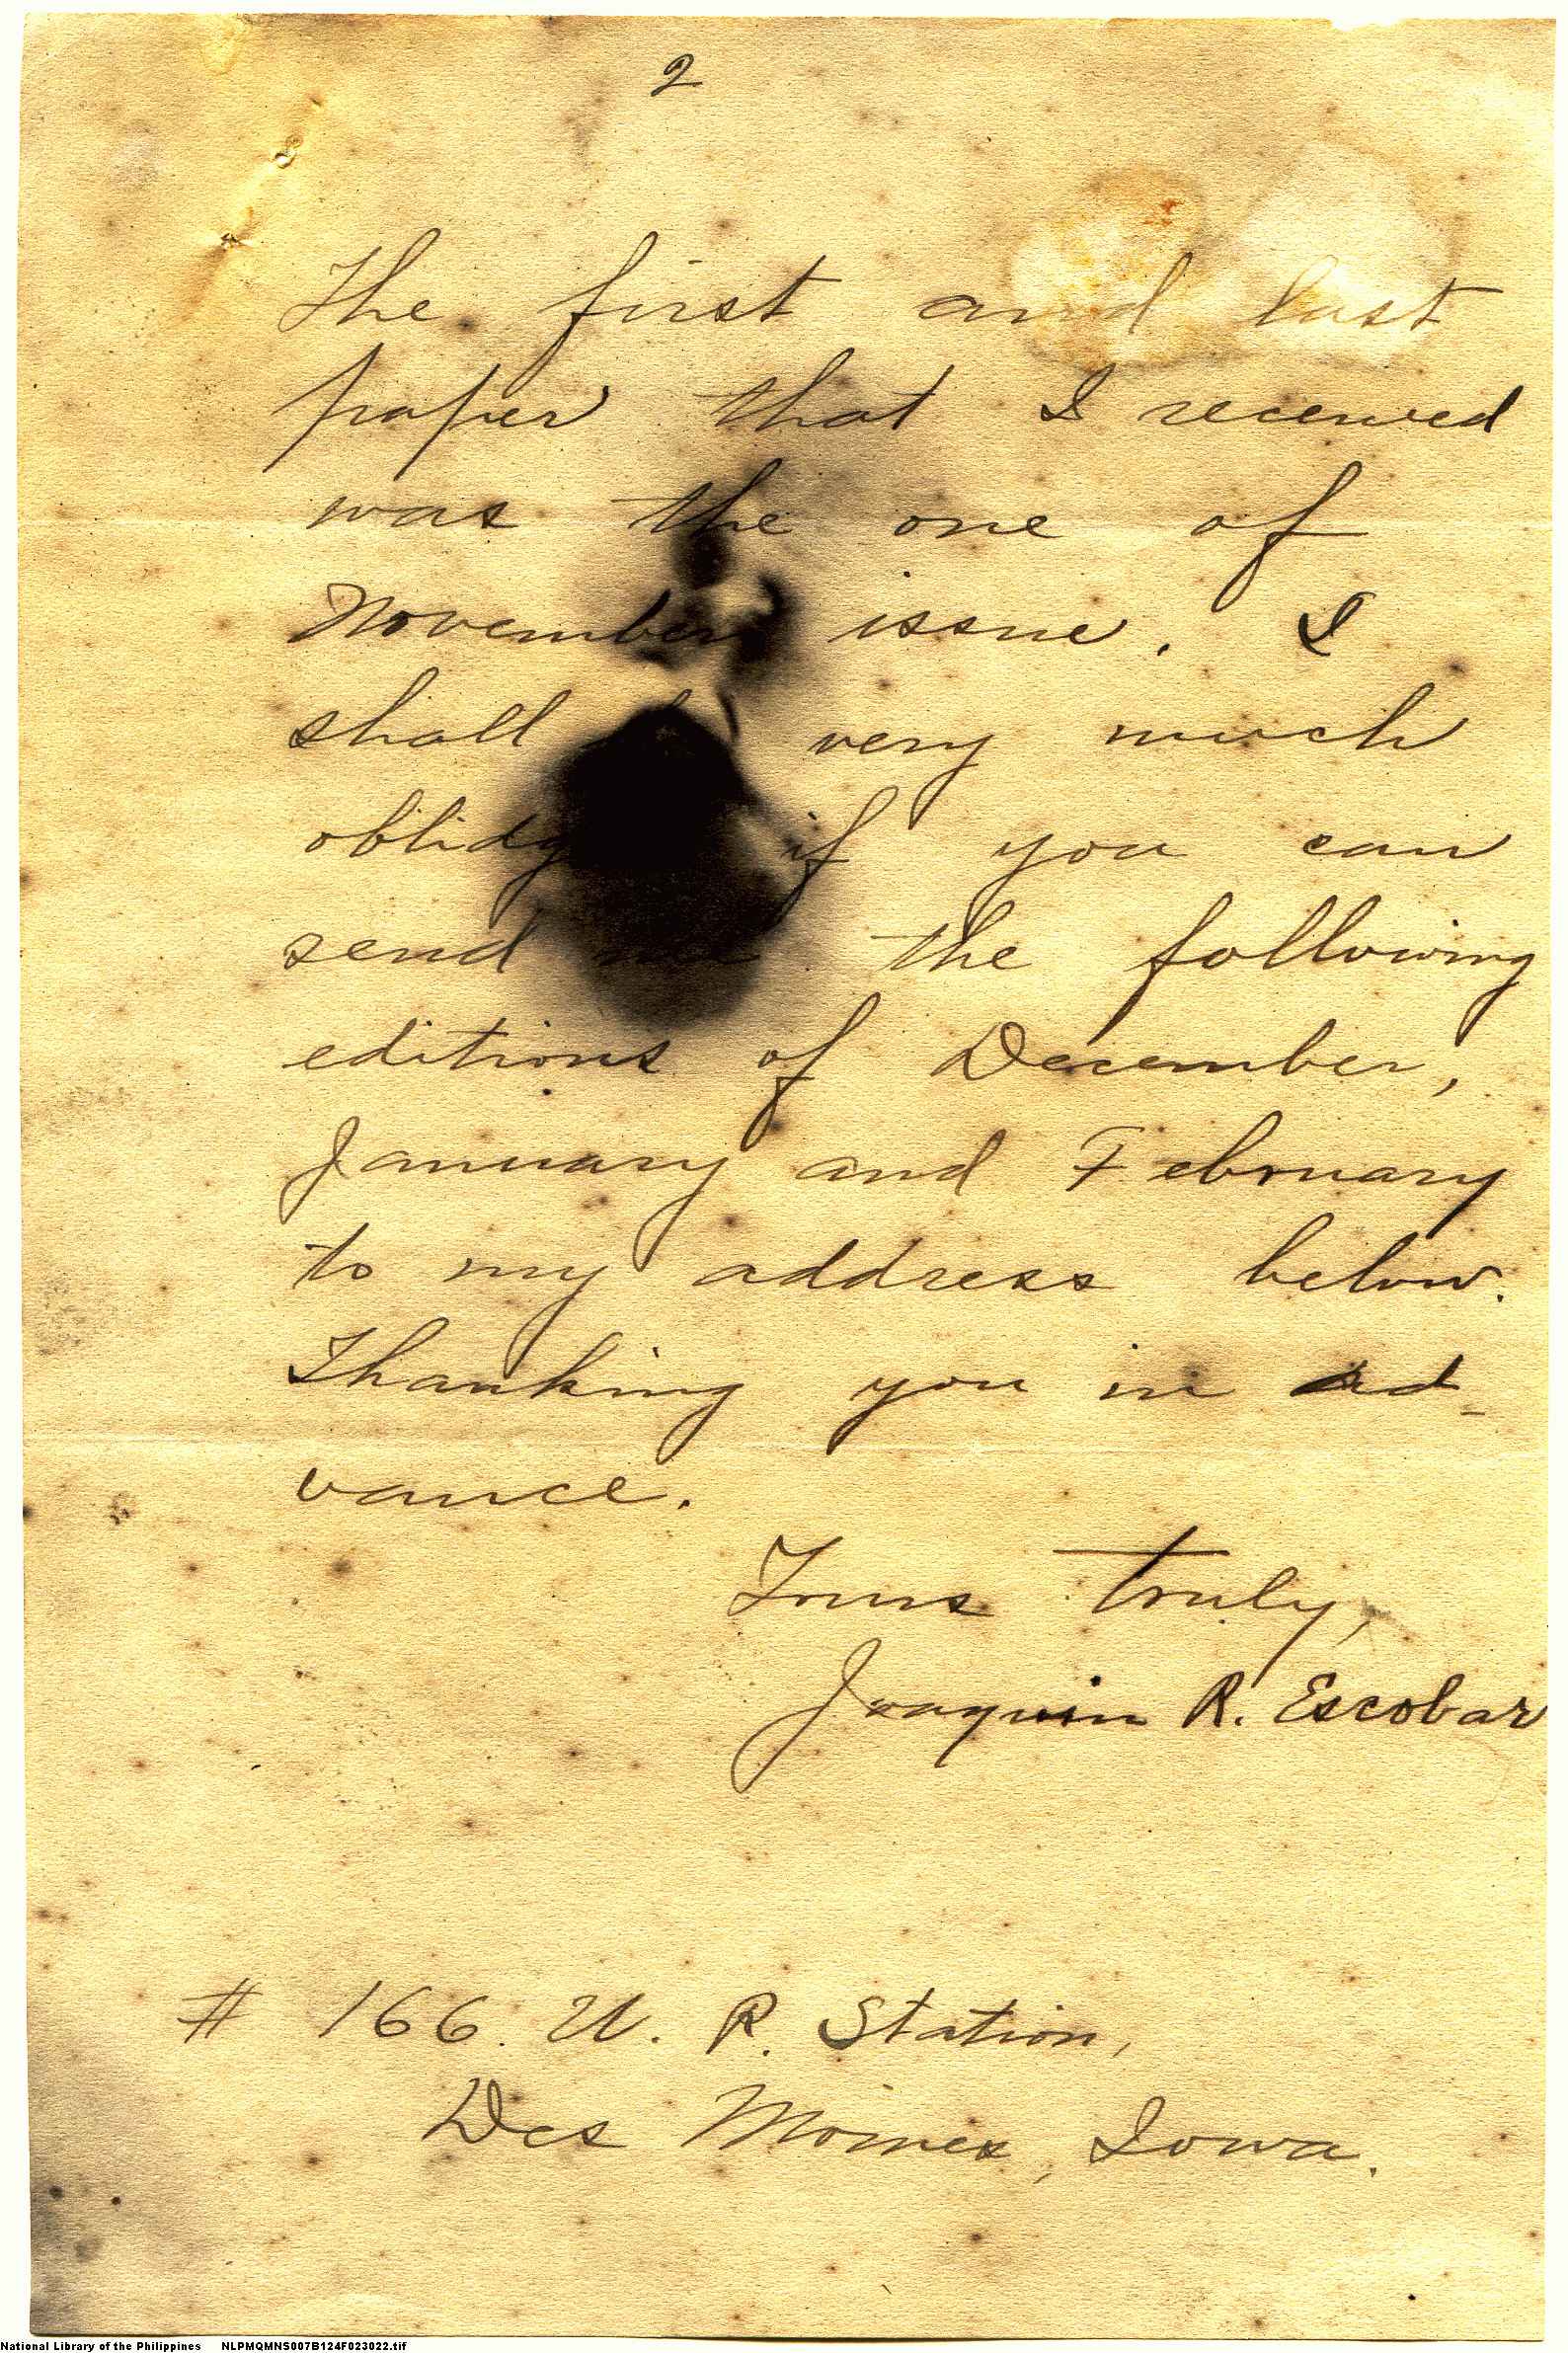 2
The first and last
paper that I received
was the one of
November issue. I
shall very much
oblidg if you can
send me the following
editions of December,
January and February
to my address below.
Thanking you in ad-
vance.
Yours truly,
Joaquin R. Escobar
# 166. U. P. Station,
Des Moines, Iowa.
National Library of the Philippines NLPMQMNS007B124F023022.tif